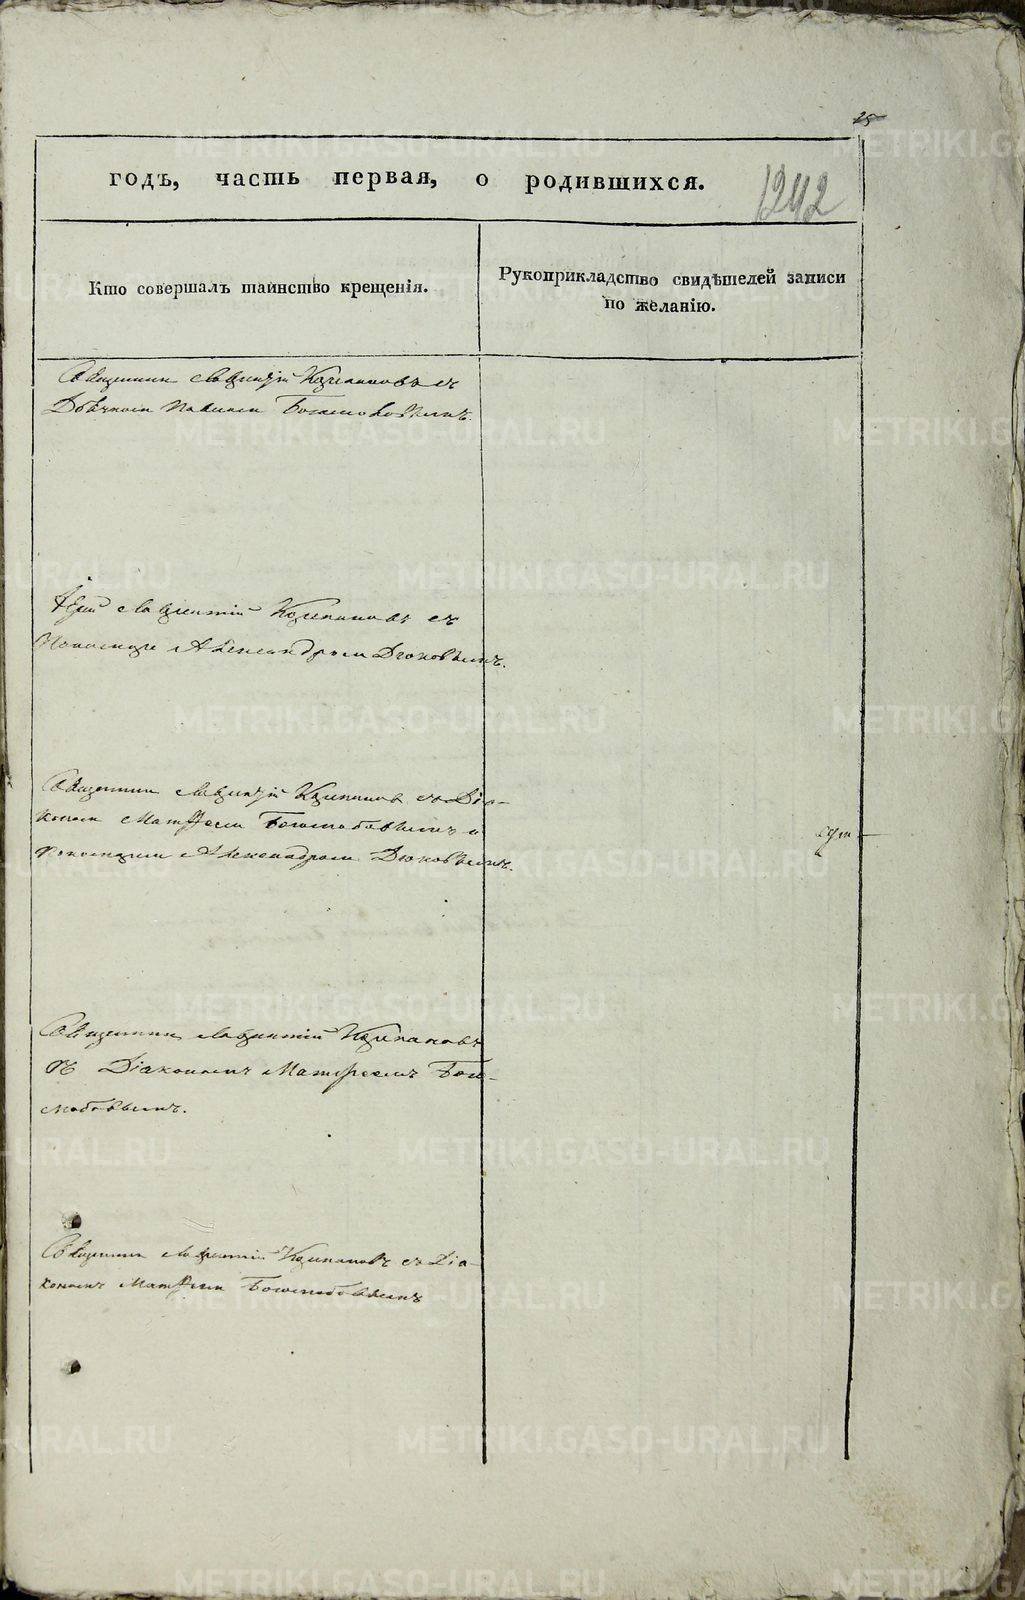 25
годъ, часть первая, о родившихся.
1242
Кто совершалъ таинство крещенія.
Рукоприкладство свидѣтелей записи
по желанію.
Священник Лаврентій Капустинъ с
Дьячком Павлом
Іерей Лаврентій съ
Пономаре Александром Дюковымъ.
Священник Лаврентій съ Діа-
коном Матфеем Боголюбовымъ и
Пономарем Александром Дюковымъ.
Священник Лаврентій
съ Діакономъ Матфеемъ Бого-
любовымъ.
Священник Лаврентій съ Діа-
кономъ Матфеем Боголюбовымъ
METRIKI.GASO-URAL.RU